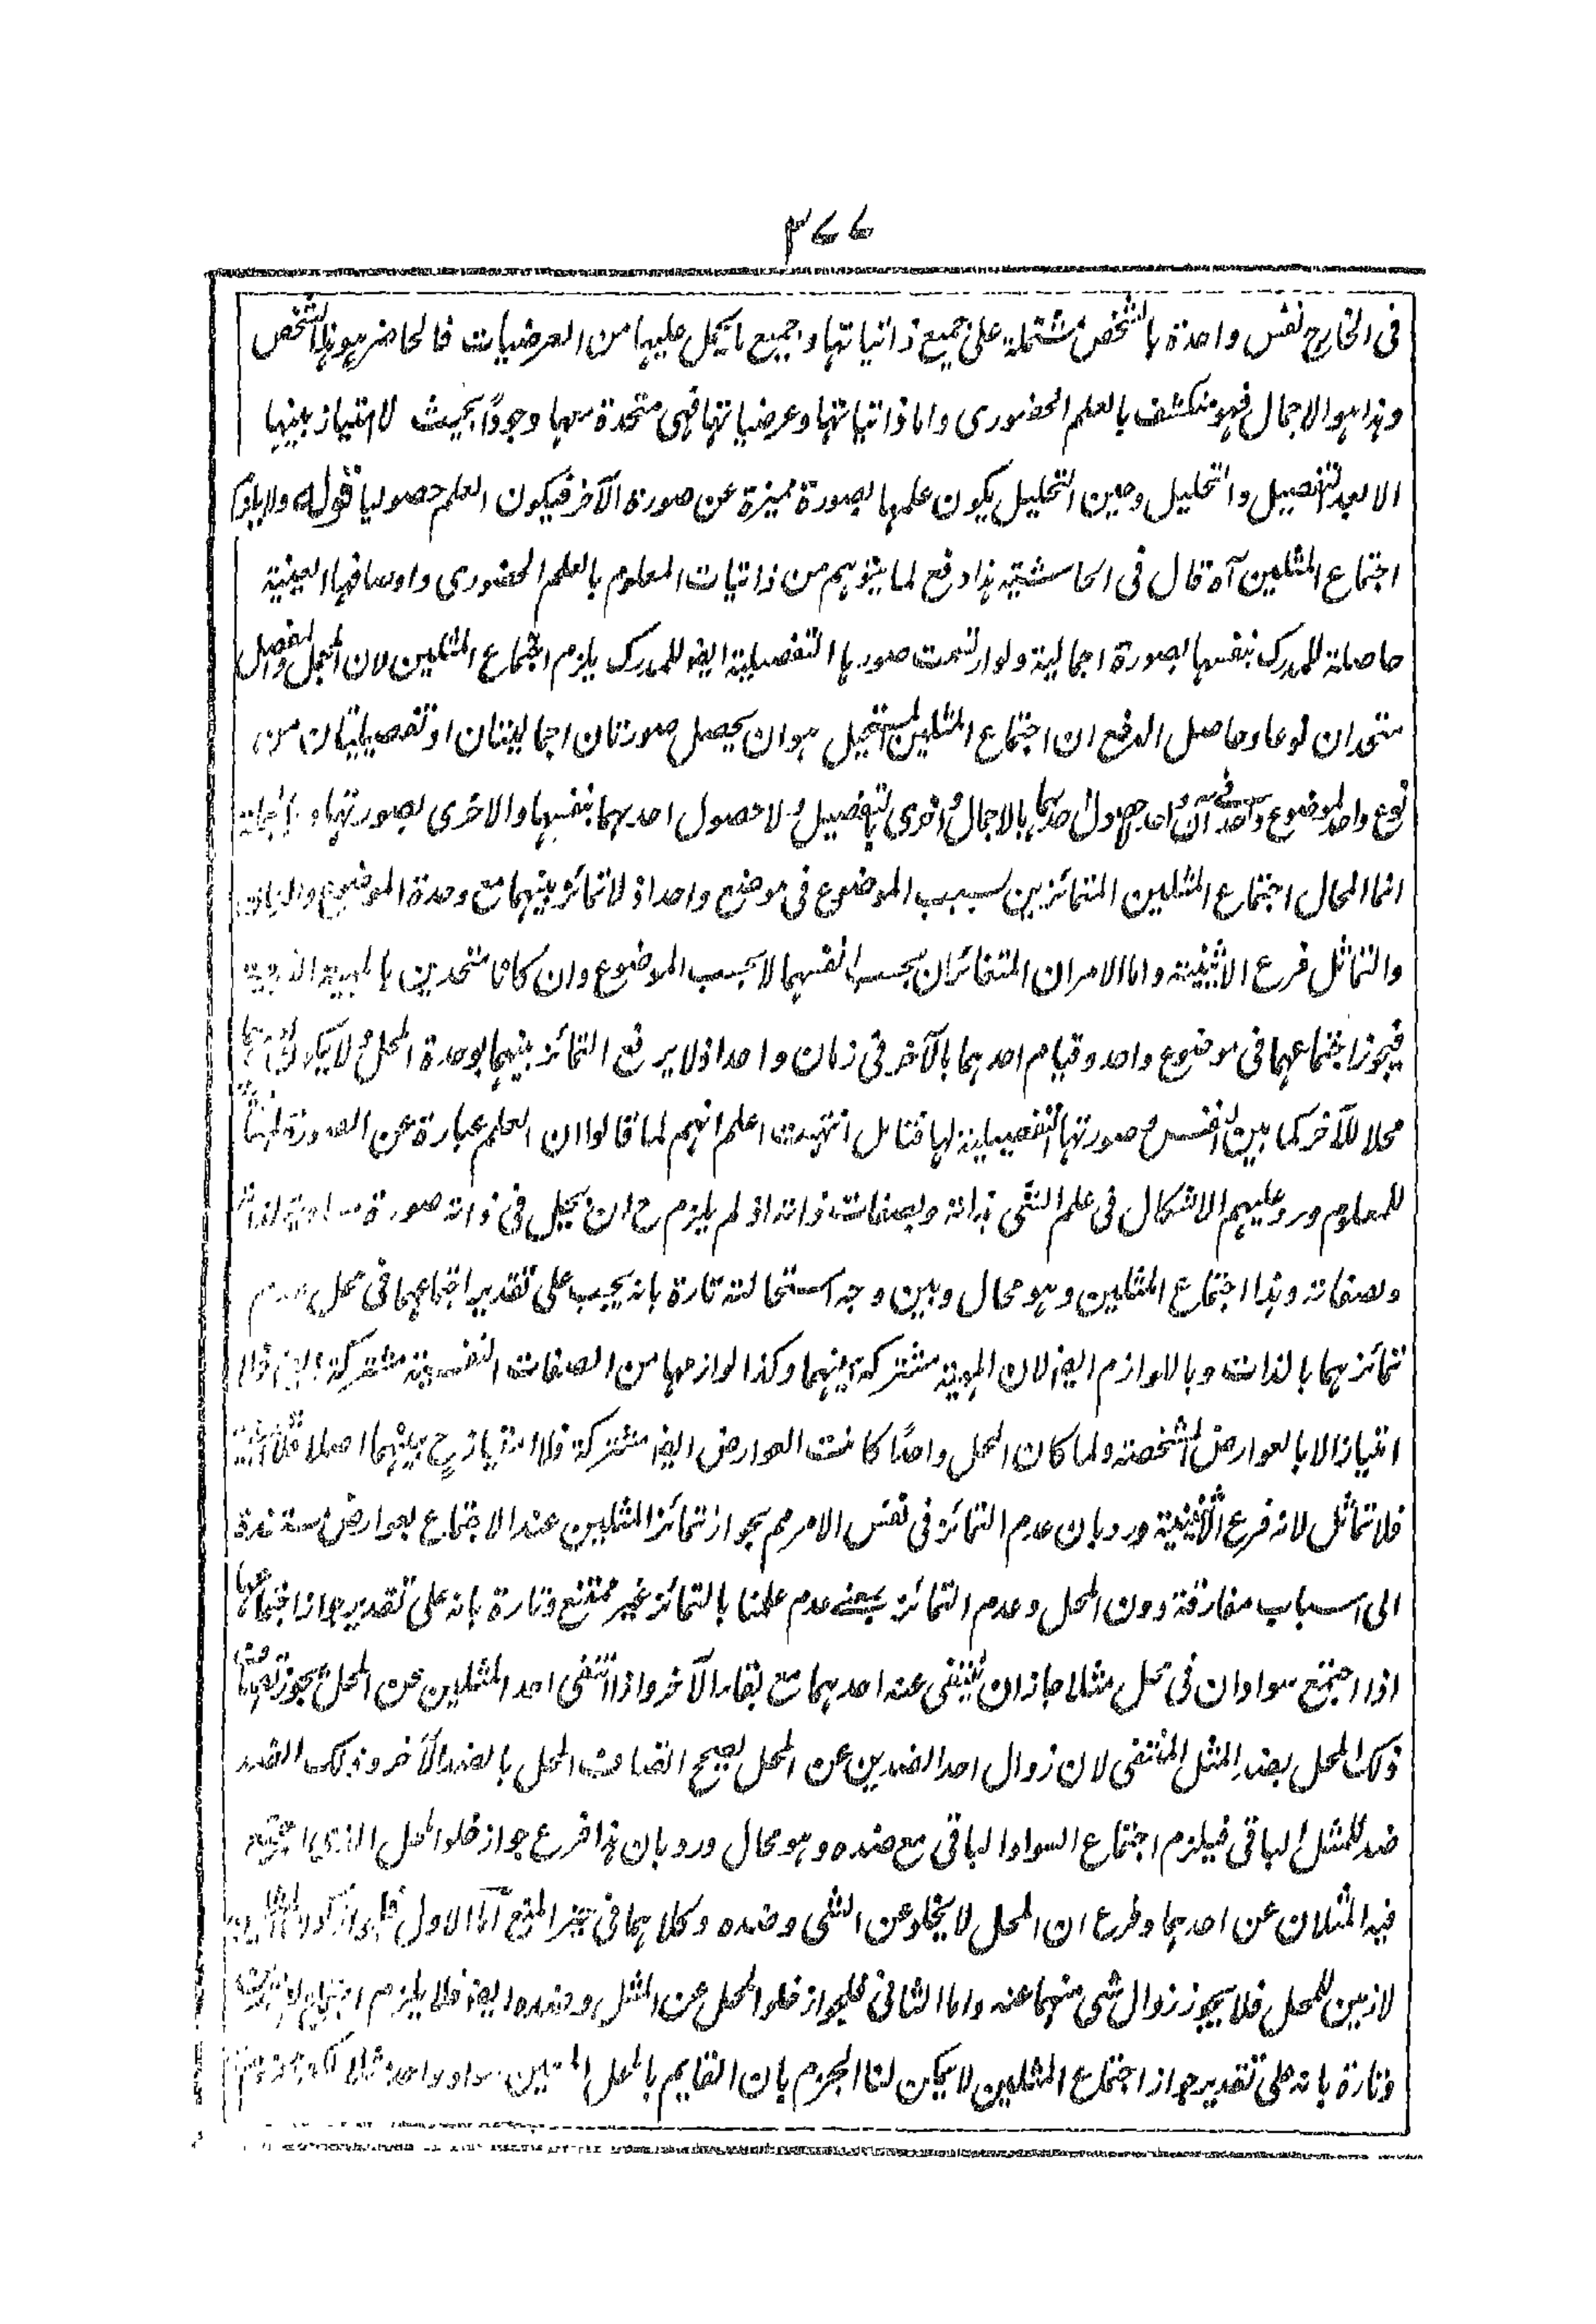 ٣٧٧
فی الخارج نفس واحدة بالشخص مشتملة علی جمیع ذاتیاتها وجمیع ما یحمل علیها من العرضیات فالحاضر هو هذا الشخص
وهذا هو الاجمال فهو منکشف بالعلم الحضوری واما ذاتیاتها وعرضیاتها فهی متحدة معها وجودًا بحیث لا امتیاز بینها
الا بعد التفصیل والتحلیل وحین التحلیل یکون علمها بصورة ممیزة عن صورة الآخر فیکون العلم حصولیا قوله ولا یلزم
اجتماع المثلین آه قال فی الحاشیة هذا دفع لما یتوهم من ذاتیات المعلوم بالعلم الحضوری واوصافها العینیة
حاصلة للمدرک بنفسها بصورة اجمالیة ولو ارتسمت صورها التفصیلیة ایضا للمدرک یلزم اجتماع المثلین لان المجمل والمفصل
متحدان نوعا وحاصل الدفع ان اجتماع المثلین المستحیل هو ان یحصل صورتان اجمالیتان او تفصیلیتان من
نوع واحد لموضوع واحد فی آن واحد لا حصول احدهما بالاجمال واخری بالتفصیل ولا حصول احدیهما بنفسها والاخری بصورتها
انما المحال اجتماع المثلین المتمائزین بسبب الموضوع فی موضع واحد اذ لا تمائز بینهما مع وحدة الموضوع والزمان
والتماثل فرع الاثنینیة واما الامران المتغائران بحسب انفسهما لا بحسب الموضوع وان کانا متحدین بالمهیة النوعیة
فیجوز اجتماعهما فی موضوع واحد وقیام احدهما بالآخر فی زمان واحد اذ لا یرفع التمائز بینهما بوحدة المحل ولا یکون
محلا للآخر کما بین النفس وصورتها التفصیلیة لها فتامل انتهت اعلم انهم لما قالوا ان العلم عبارة عن الصورة
للمعلوم ورد علیهم الاشکال فی علم الشی بذاته وبصفات ذاته اذ لم یلزم ح ان یحل فی ذاته صورة مساویة لذاته
وصفاته وهذا اجتماع المثلین وهو محال وبین وجه استحالته تارة بانه یجب علی تقدیر اجتماعهما فی محل عدم
تمائزهما بالذات وباللوازم ایضا لان المهیة مشترکة بینهما وکذا لوازمها من الصفات النفسیة مشترکة
امتیاز الا بالعوارض المشخصة ولما کان المحل واحدًا کانت العوارض ایضا مشترکة فلا امتیاز ح بینهما اصلا
فلا تماثل لانه فرع الاثنینیة ورد بان عدم التمائز فی نفس الامر مم بجواز تمائز المثلین عند الاجتماع بعوارض مستندة
الی اسباب مفارقة دون المحل وعدم التمائز بمعنے عدم علمنا بالتمائز غیر ممتنع وتارة بانه علی تقدیر جواز اجتماعهما
اذا اجتمع سوادان فی محل مثلا جاز ان ینتفی عنه احدهما مع بقاء الآخر واذا انتفی احد المثلین عن المحل یجوز
ذلک المحل بضد المثل المنتفی لان زوال احد الضدین عن المحل یصح اتصاف المحل بالضد الآخر وذلک الضد
ضد للمثل الباقی فیلزم اجتماع السواد الباقی مع ضده وهو محال ورد بان هذا فرع جواز خلو المحل الذی اجتمع
فیه المثلان عن احدهما وفرع ان المحل لا یخلو عن الشی وضده وکلاهما فی حیز المنع اما الاول فلجواز کون
لازمین للمحل فلا یجوز زوال شی منهما عنه واما الثانی فلجواز خلو المحل عن المثل وضده ایضا فلا یلزم
وتارة بانه علی تقدیر جواز اجتماع المثلین لا یمکن لنا الجزم بان القایم بالمحل المعین سواد واحد مثلا